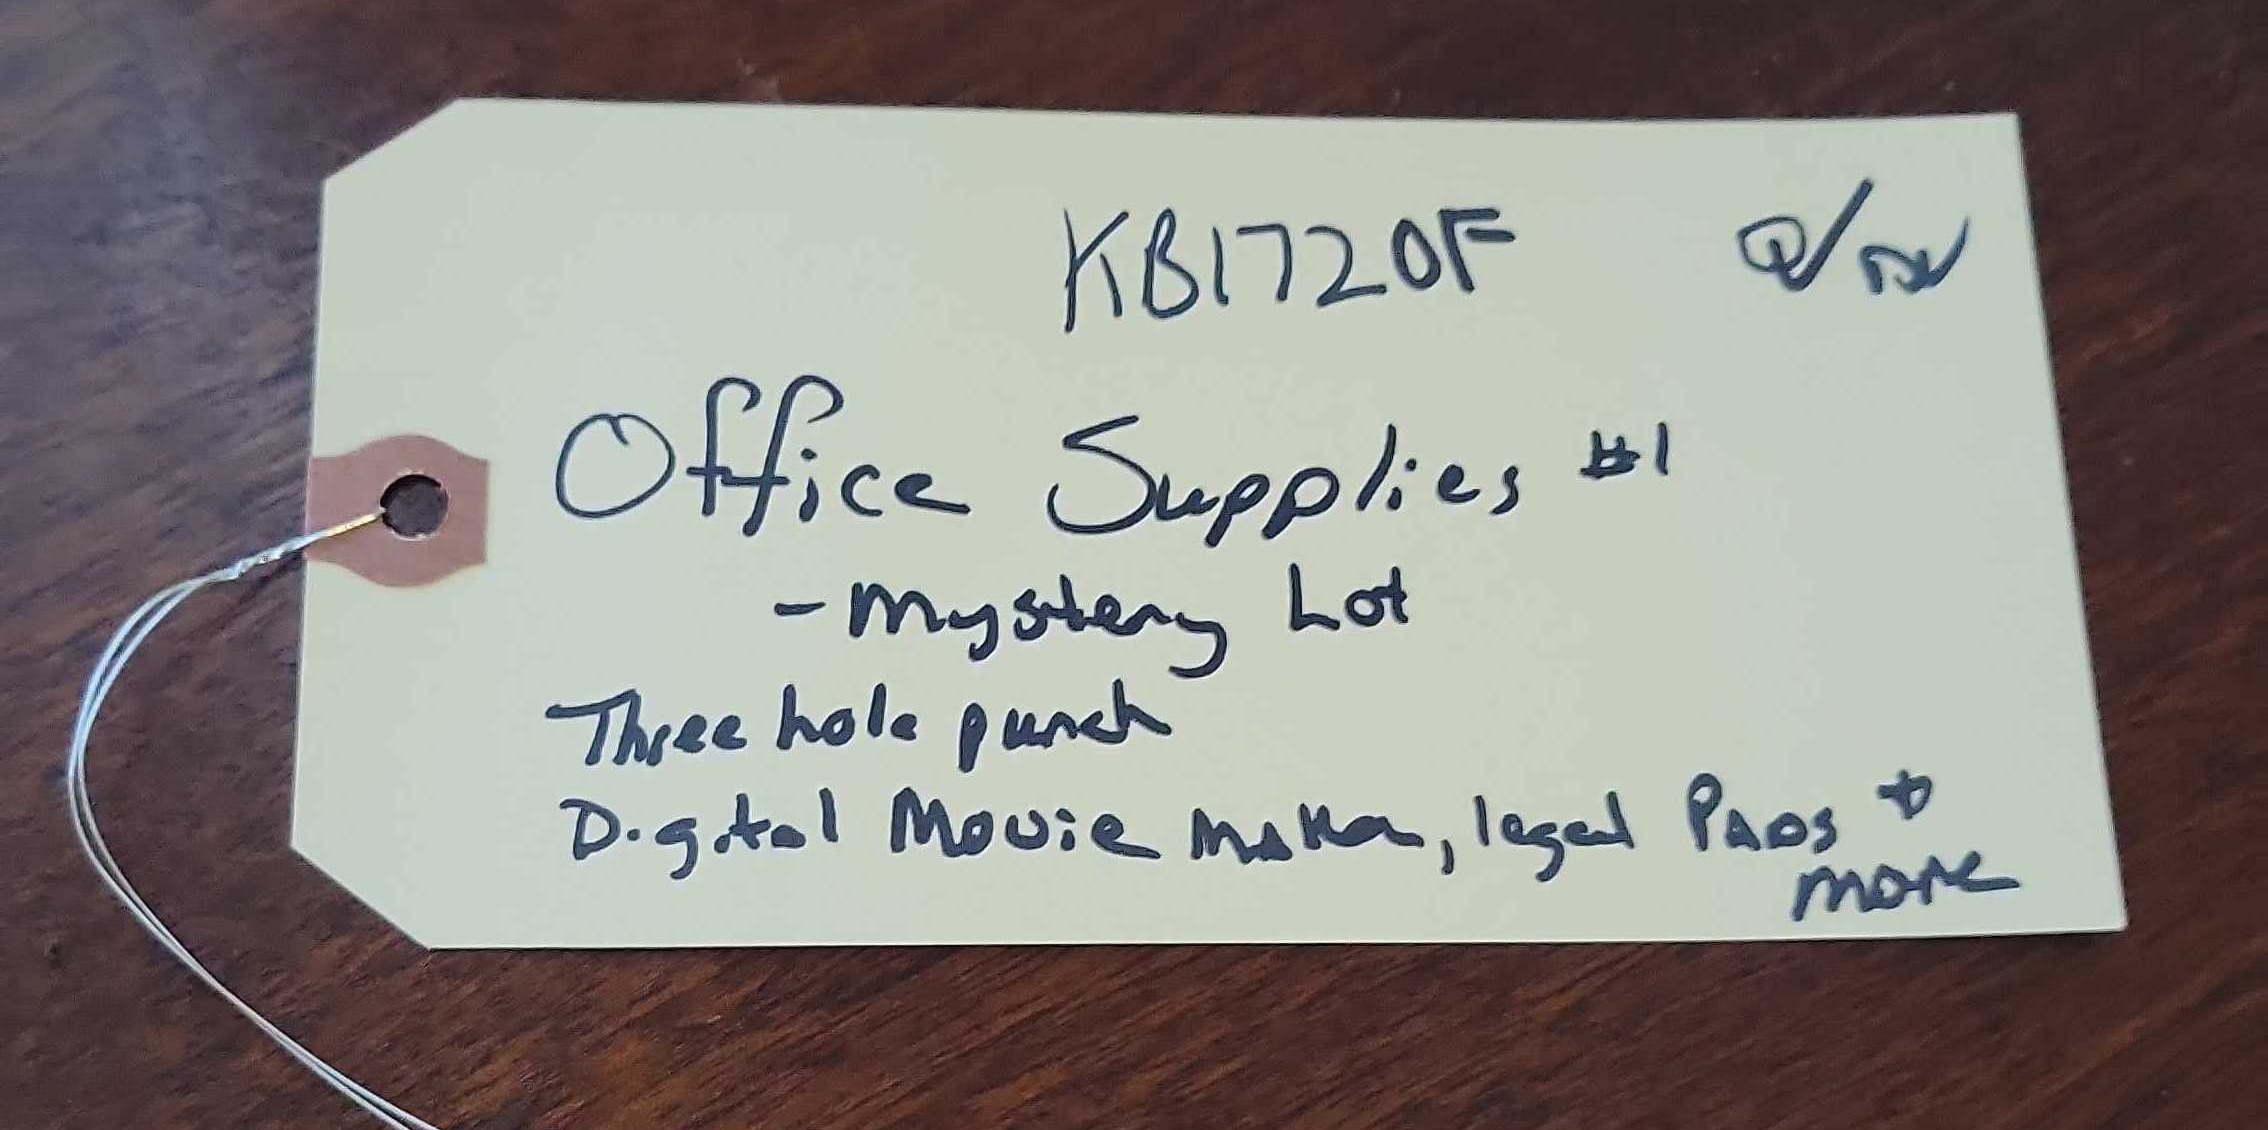 KB1720F
Office Supplies #1
- Mystery Lot
Three hole punch
Digital Movie Maker, legal Pads +
more